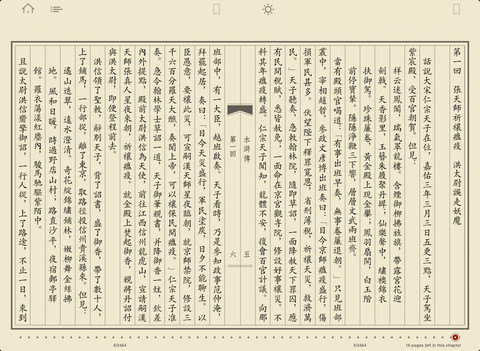 第一回　張天師祈禳瘟疫　洪太尉誤走妖魔
話說大宋仁宗天子在位，嘉佑三年三月三日五更三點，天子駕坐
紫宸殿，受百官朝賀。但見：
祥雲迷鳳閣，瑞氣罩龍樓。含煙御柳拂旌旗，帶露宮花迎
劍戟。天香影里，玉簪朱履聚丹墀；仙樂聲中，繡襖錦衣
扶御駕。珍珠廉卷，黃金殿上現金轝；鳳羽扇開，白玉階
前停寶輦。隱隱淨鞭三下響，層層文武兩班齊。
當有殿頭官喝道：「有事出班早奏，無事卷廉退朝。」只見班部
叢中，宰相趙哲、參政文彥博出班奏曰：「目今京師瘟疫盛行，傷
損軍民甚多。伏望陛下釋罪寬恩，省刑薄稅，祈禳天災，救濟萬
民。」天子聽奏，急敕翰林院，隨即草詔，一面降赦天下罪囚，應
有民間稅賦，悉皆赦免；一面命在京宮觀寺院，修設好事禳災。不
料其年瘟疫轉盛。仁宗天子聞知，龍體不安，復會百官計議。向那
水滸傳
第一回
五
六
班部中，有一大臣，越班啟奏。天子看時，乃是參知政事范仲淹，
拜罷起居，奏曰：「目今天災盛行，軍民塗炭，日夕不能聊生。以
臣愚意，要禳此災，可宣嗣漢天師星夜臨朝，就京師禁院，修設三
千六百分羅天大醮，奏聞上帝，可以禳保民間瘟疫。」仁宗天子准
奏。急令翰林學士草詔一道，天子御筆親書，并降御香一炷，欽差
內外提點，殿前太尉洪信為天使，前往江西信州龍虎山，宣請嗣漢
天師張真人星夜來朝，祈禳瘟疫。就金殿上焚起御香，親將丹詔付
與洪太尉，即便登程前去。
洪信領了聖敕，辭別天子，背了詔書，盛了御香，帶了數十人，
上了鋪馬，一行部從，離了東京，取路徑投信州貴溪縣來。但見：
遙山迭翠，遠水澄清。奇花綻錦繡鋪林，嫩柳舞金絲拂
地。風和日暖，時過野店山村；路直沙平，夜宿郵亭驛
館。羅衣蕩漾紅塵內，駿馬馳驅紫陌中。
且說太尉洪信齎擎御詔，一行人從，上了路途，不止一日，來到
5/2464
5/2464
16 pages left in this chapter